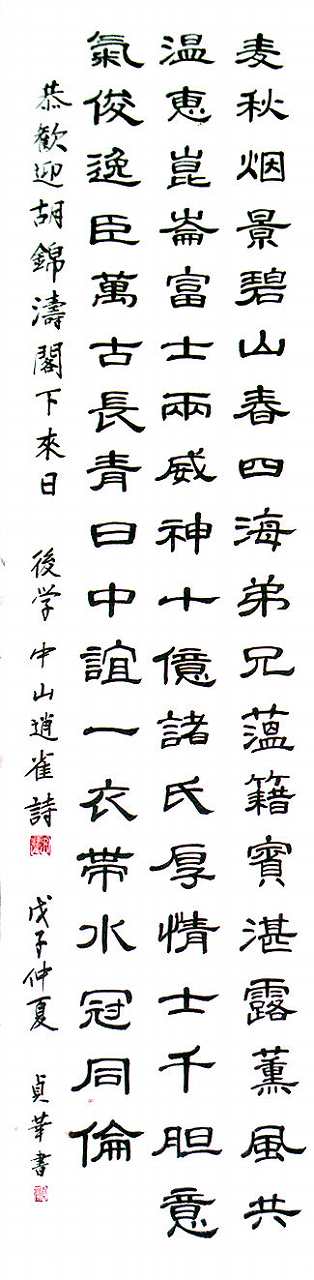 麦秋烟景碧山春四海弟兄薀籍賓湛露薫風共
温恵崑崙富士兩威神十億諸氏厚情士千胆意
氣俊逸臣萬古長青日中誼一衣帯水冠同倫
恭歡迎胡錦濤閣下來日 後学 中山逍雀詩 戊子仲夏 貞華書